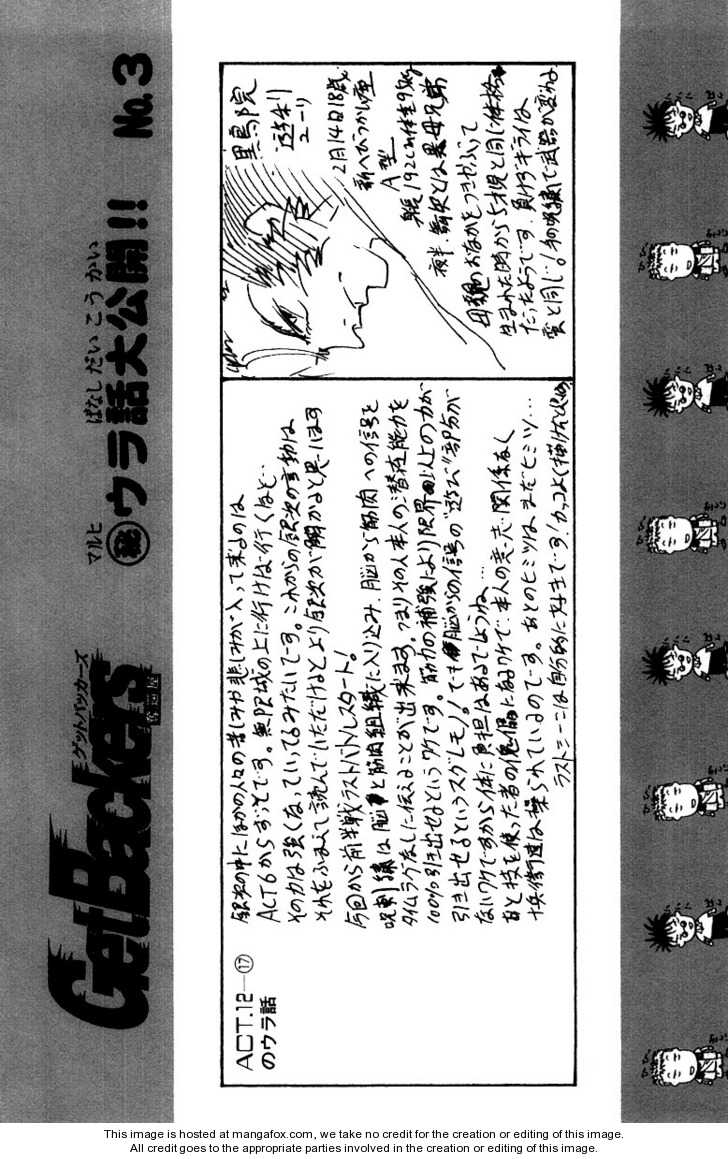 GetBackers
ゲットバッカーズ
奪還屋
マルヒ
ばなしだいこうかい
㊙ウラ話大公開!! No.3
ACT.12―⑰
のウラ話
銀次の中にほかの人々の苦しみや悲しみが入って来るのは
ACT6からずっとです。無限城の上に行けば行くほど…
その力は強くなっていってるみたいです。これからの銀次の言動は
それをふまえて読んでいただけるとより銀次が解かると思います
今回から前半戦ラストバトルスタート!
線は脳と筋肉組織に入り込み、脳から筋肉への信号を
タイムラグなしに伝えることが出来ます。つまりその人本人の潜在能力を
100%引き出せるというワケです。筋力の補強により限界以上の力が
引き出せるというスグレモノ!でも脳からの信号の"遊び"部分が
ないワケですから体に負担はあるでしょうね…
あと技を使った者の傀儡になるワケで、本人の意志・関係なく
十兵衛達は操られているのです。あとのヒミツはまだヒミツ…
ラストシーンは自分的に大好きです!カッコよく描けたと
黒鳥院
ユーリ
2月14日18歳
新へびつかい座
A型
身長192cm体重95kg
夜半、とは異母兄弟
母親のおなかをつきやぶって
生まれた時から5才児と同じ体格
だったようです。負けずギライは
と同じ!の呪線で武器が変わる
This image is hosted at mangafox.com, we take no credit for the creation or editing of this image.
All credit goes to the appropriate parties involved in the creation or editing of this image.